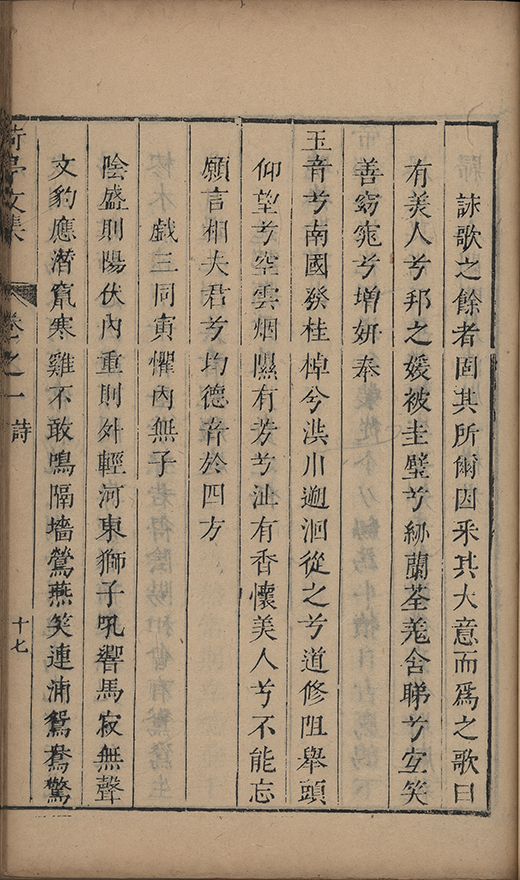 詠歌之餘者固其所爾因釆其大意而爲之歌曰
有美人兮邦之媛被圭璧兮紉蘭荃羌含睇兮宜笑
善窈窕兮增妍奉
玉音兮南國發桂棹兮淇川遡洄從之兮道修阻舉頭
仰望兮空雲烟隰有芳兮汕有香懷美人兮不能忘
願言相夫君兮均德音於四方
戲三同寅懼內無子
陰盛則陽伏內重則外輕河東獅子吼響馬寂無聲
文豹應潛竄寒雞不敢鳴隔墻鶯燕笑連浦鴛鴦驚
亭文集 卷之一 詩 十七